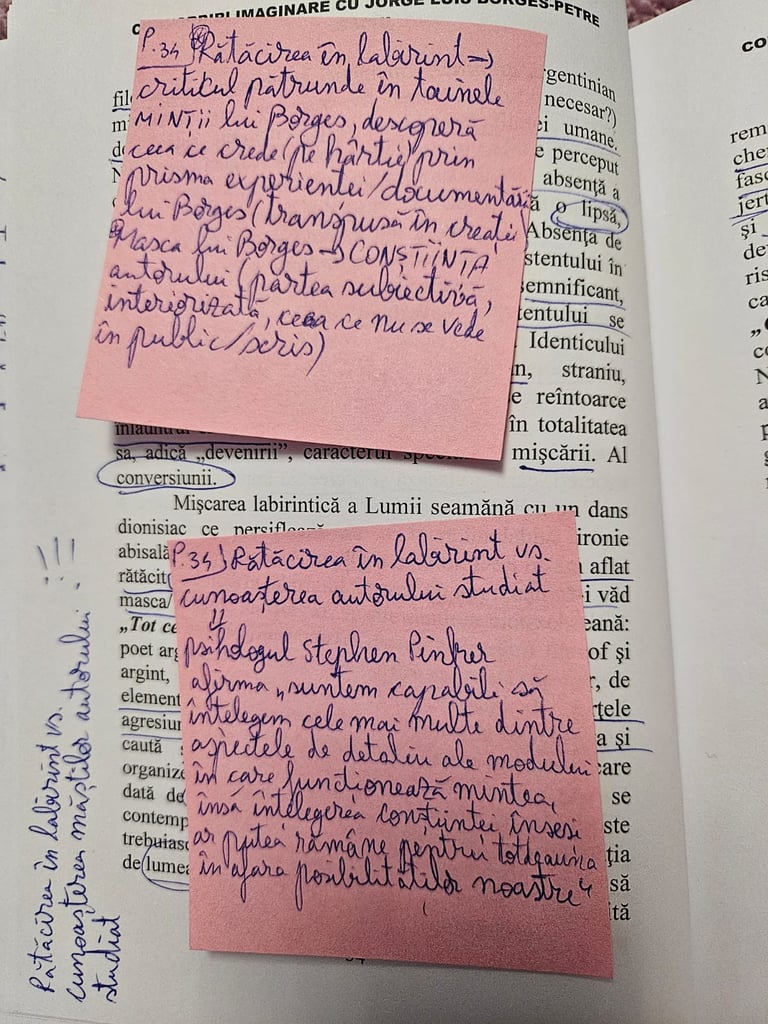 IMAGINARE CU JORGE LUIS BORGES-PETRE
P.34 Rătăcirea în labirint →
critikul pătrunde în tainele
MINȚII lui Borges, descoperă
ceea ce crede (pe hârtie) prin
prisma experienței/documentării
lui Borges (transpusă în creație)
Masca lui Borges → CONȘTIINȚA
autorului (partea subiectivă,
interiorizată, ceea ce nu se vede
în public/scris)
argentinian
necesar?)
ei umane.
e perceput
absență a
ă o lipsă,
Absența de
stentului în
semnificant,
tentului se
Identicului
n, straniu,
e reîntoarce
în totalitatea
sa, adică „devenirii”, caracterul mișcării. Al
conversiunii.
Mișcarea labirintică a Lumii seamănă cu un dans
dionisiac ce persiflează ironie
abisală
rătăcit aflat
masca/ i văd
„Tot ce eană:
poet arg of și
argint, r, de
element rtele
agresiun a și
caută care
organize
data de se
contemp ste
trebuias ția
de lumea să
ită
P.34 Rătăcirea în labirint vs.
cunoașterea autorului studiat
⇓
psihologul Stephen Pinker
afirma „suntem capabili să
înțelegem cele mai multe dintre
aspectele de detaliu ale modului
în care funcționează mintea,
însă înțelegerea conștiinței însesi
ar putea rămâne pentru totdeauna
în afara posibilităților noastre“
Rătăcirea în labirint vs.
cunoașterea măștilor autorului !!!
studiat
CO
rem
che
fasc
jert
și
de
ris
ca